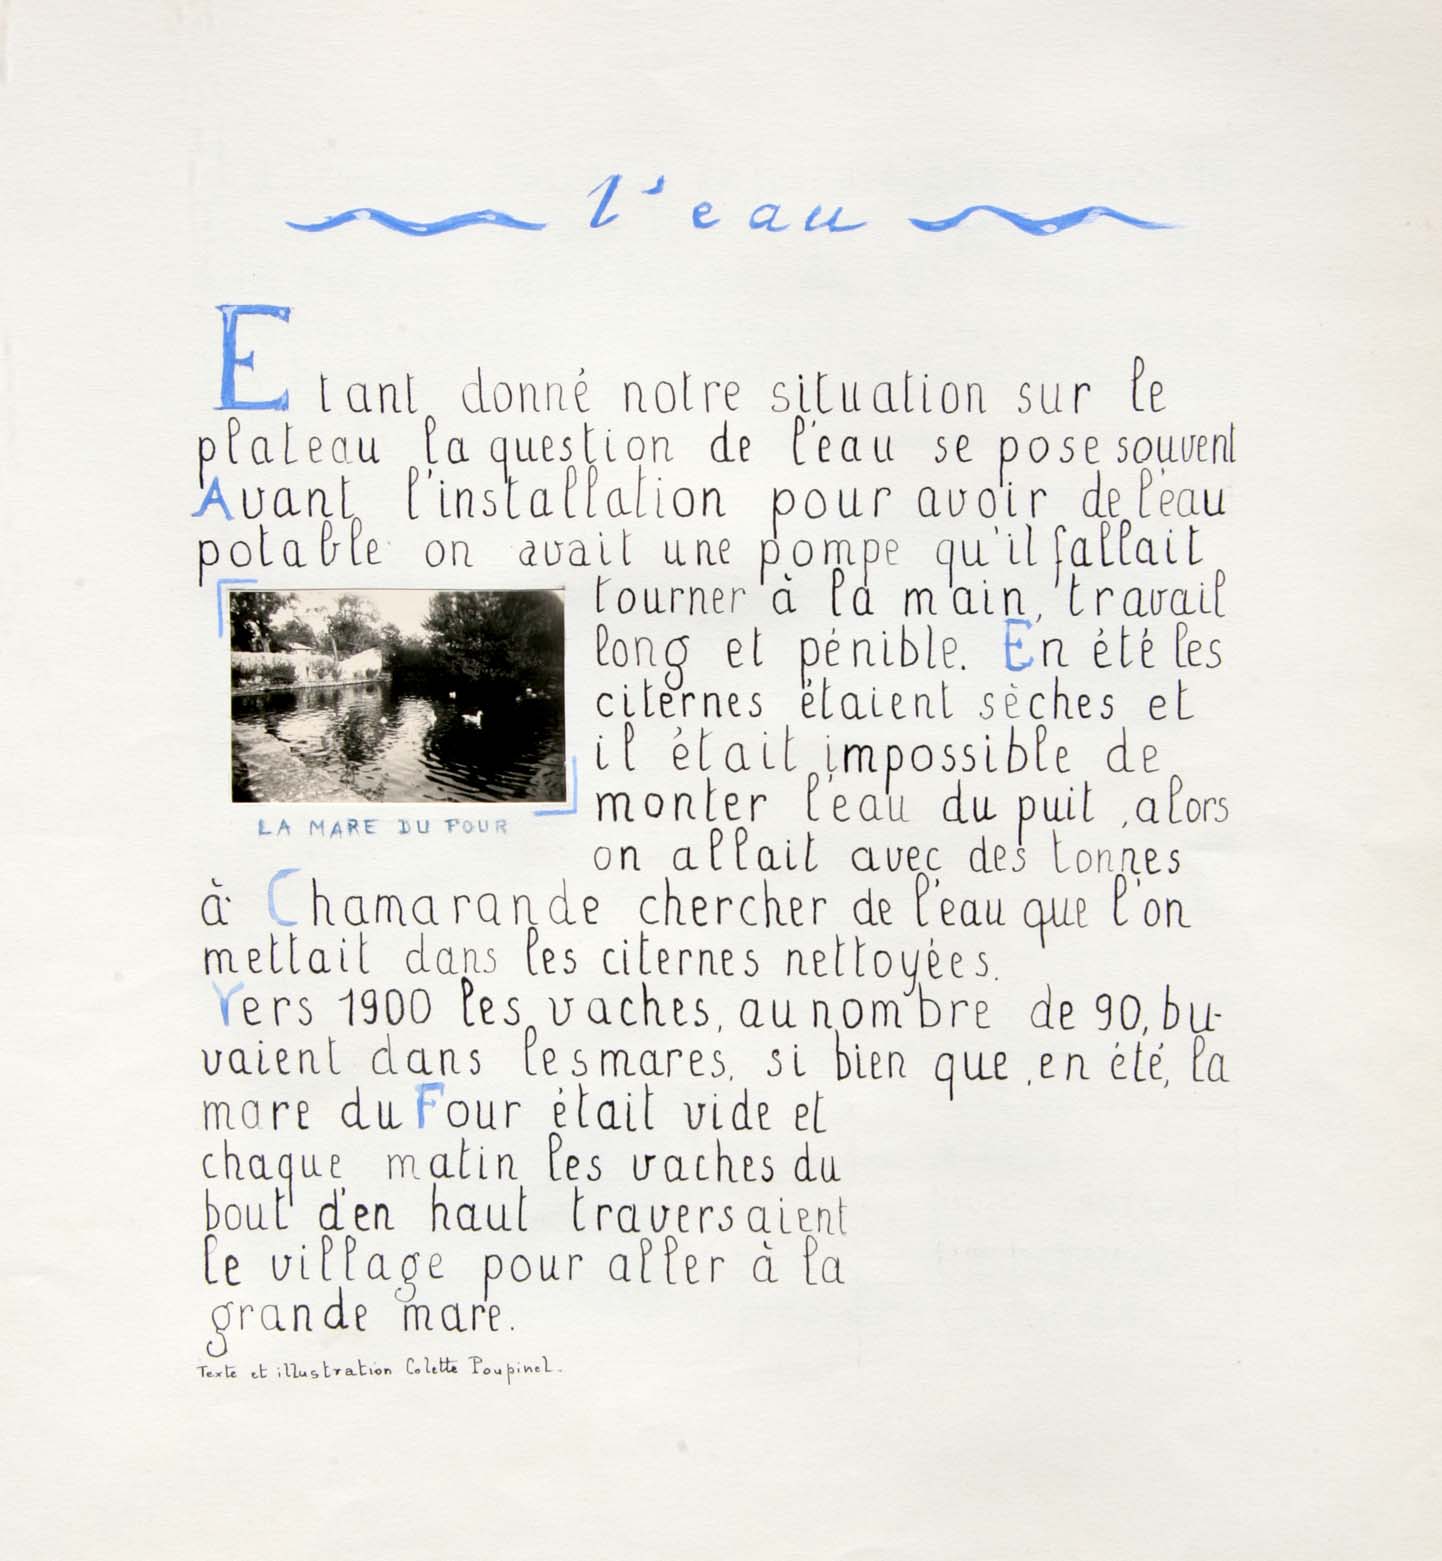 l'eau
Etant donné notre situation sur le
plateau la question de l'eau se pose souvent
Avant l'installation pour avoir de l'eau
potable on avait une pompe qu'il fallait
tourner à la main, travail
long et pénible. En été les
citernes étaient sèches et
il était impossible de
monter l'eau du puit, alors
on allait avec des tonnes
LA MARE DU FOUR
à Chamarande chercher de l'eau que l'on
mettait dans les citernes nettoyées.
Vers 1900 les vaches, au nombre de 90, bu-
vaient dans les mares, si bien que, en été, la
mare du Four était vide et
chaque matin les vaches du
bout d'en haut traversaient
le village pour aller à la
grande mare.
Texte et illustration Colette Poupinel.